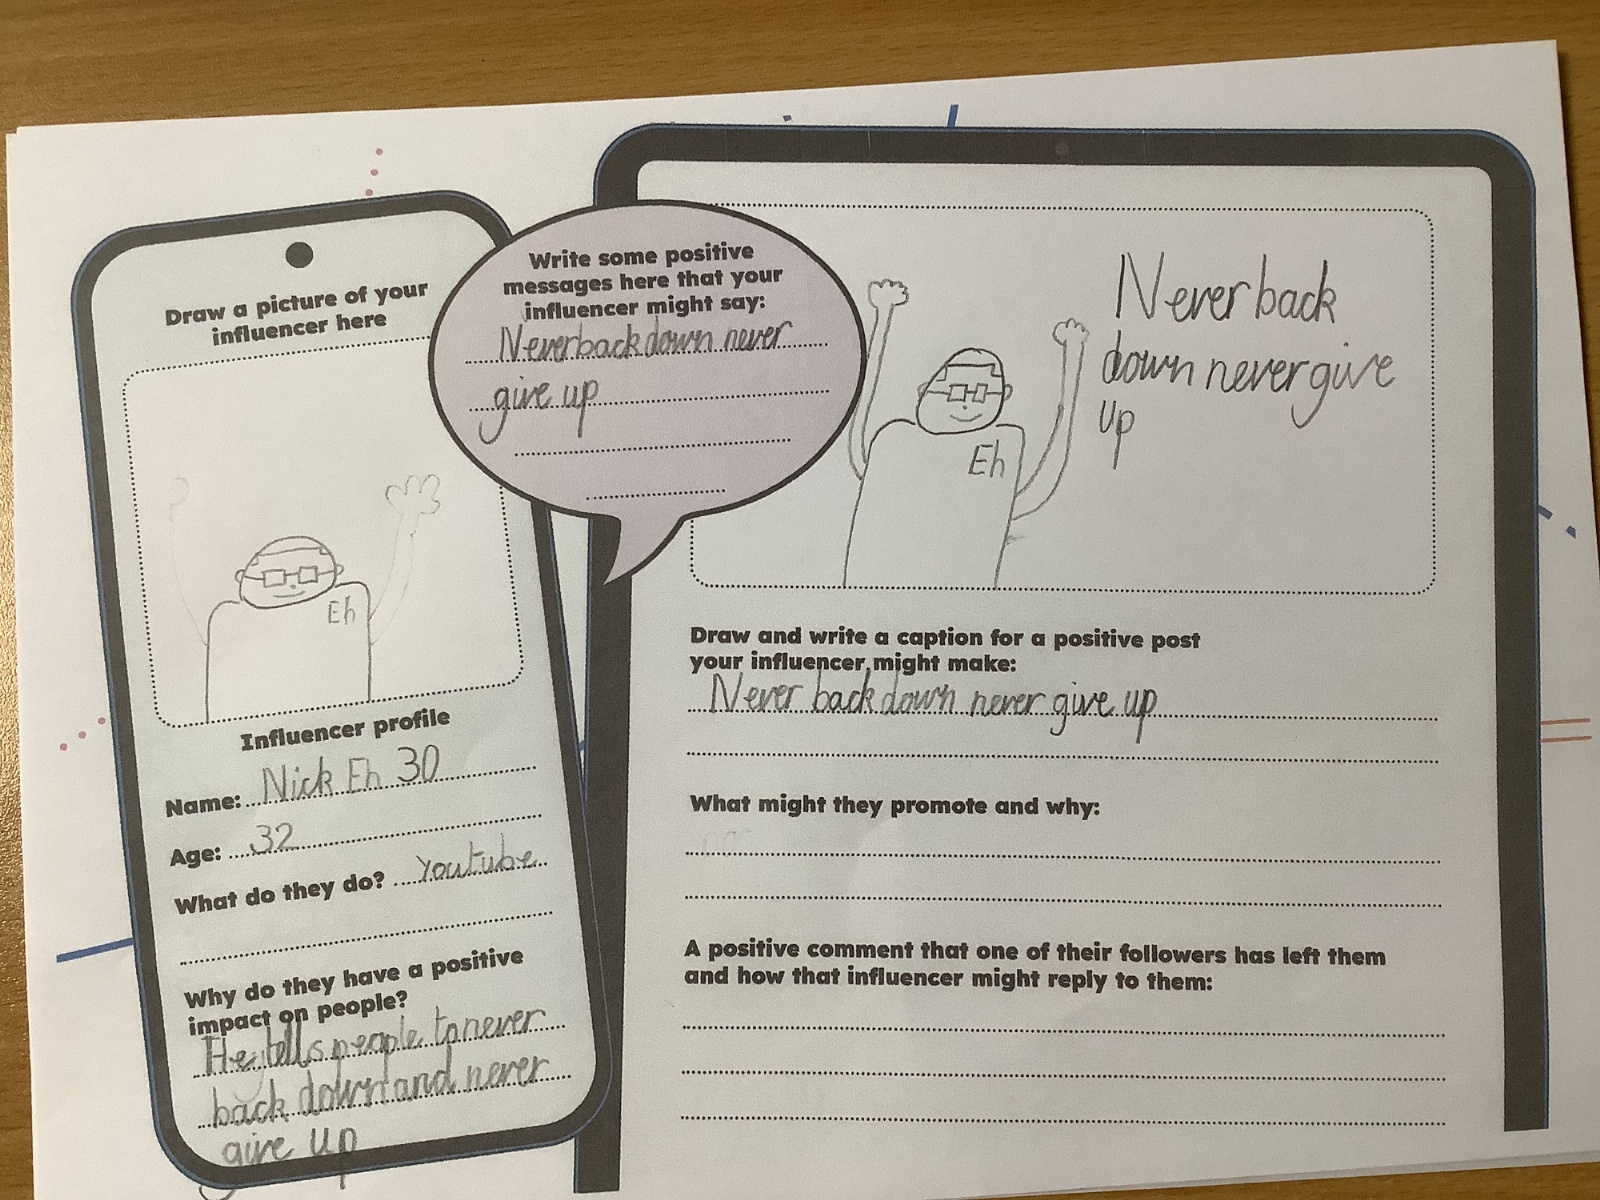 Draw a picture of your
influencer here
Eh
Influencer profile
Name: Nick Eh 30
Age: 32
What do they do? Youtube
Why do they have a positive
impact on people?
He tells people to never
back down and never
give up
Write some positive
messages here that your
influencer might say:
Never back down never
give up
Eh
Never back
down never give
up
Draw and write a caption for a positive post
your influencer might make:
Never back down never give up
What might they promote and why:
A positive comment that one of their followers has left them
and how that influencer might reply to them: